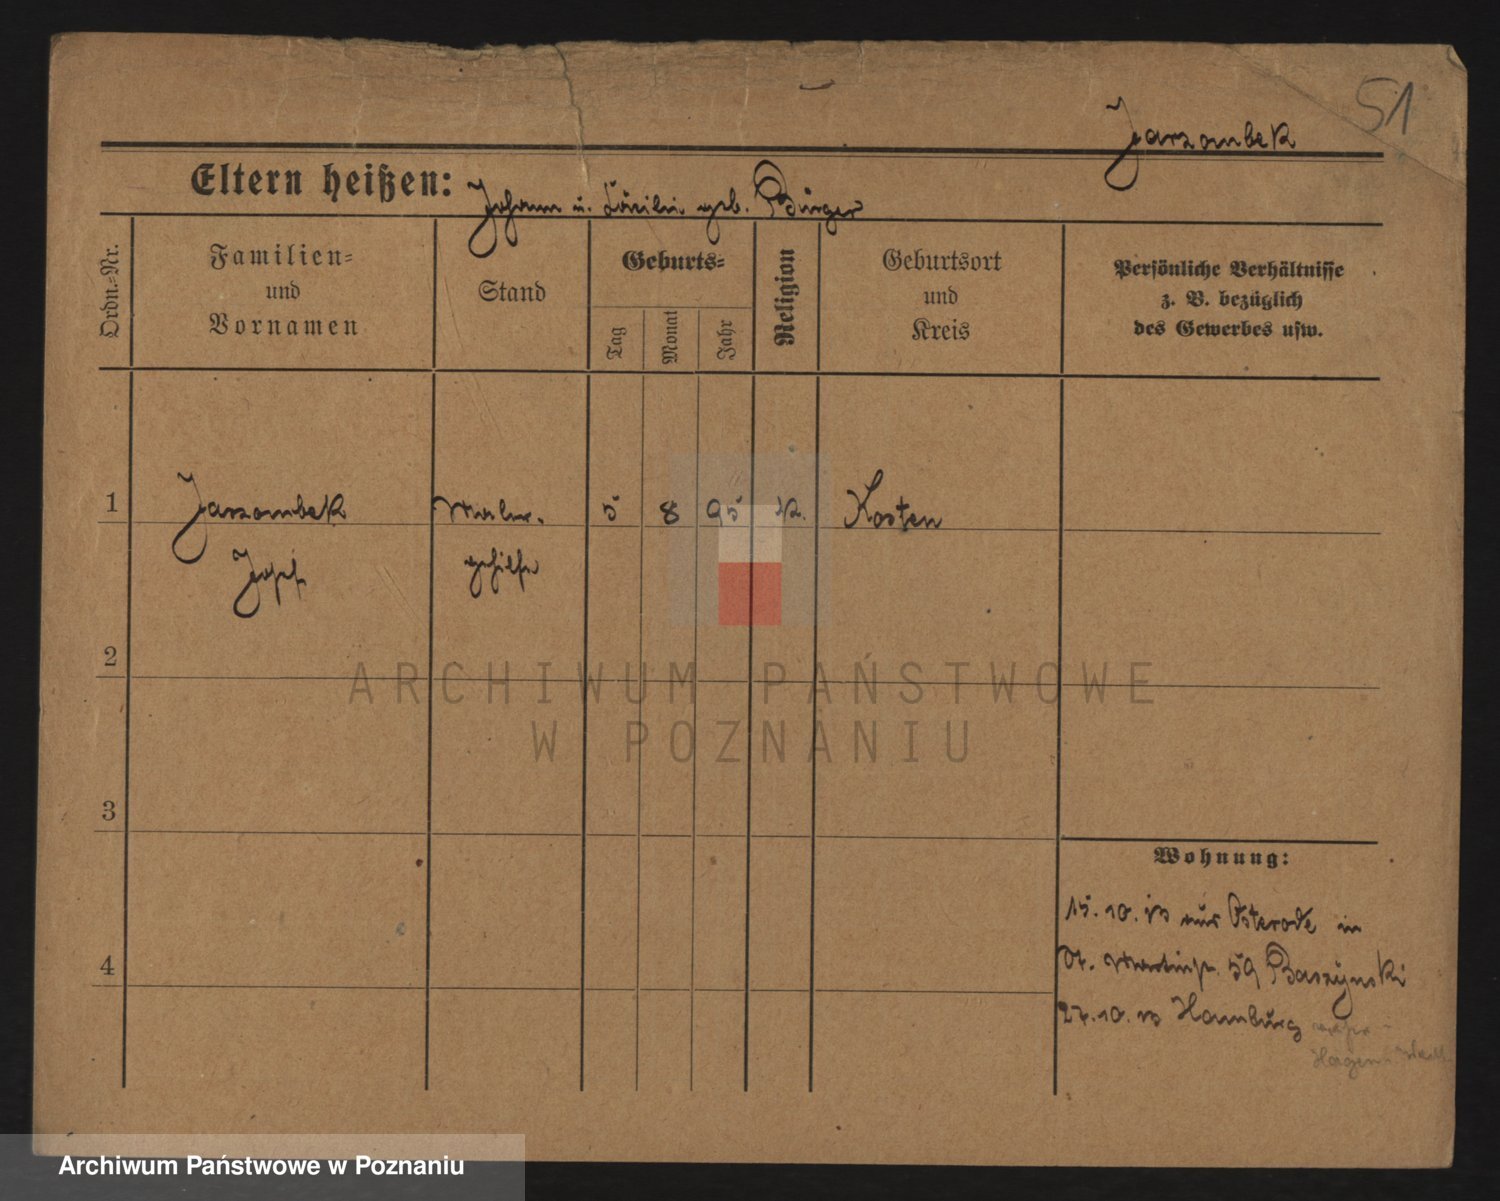 51
Jarzombek
Eltern heißen: Johann u. Cäcilie geb. Bürger
Ordn.-Nr.
Familien-
und
Vornamen
Stand
Geburts-
Tag
Monat
Jahr
Religion
Geburtsort
und
Kreis
Persönliche Verhältnisse
z. B. bezüglich
des Gewerbes usw.
1 Jarzombek Maler- 5 8 95 K. Kosten
Josef gehilfe
2
3
4
Wohnung:
15.10.13 aus Osterode in
St. Martinstr. 59 Baszynski
27.10.13 Hamburg
Hagen
ARCHIWUM PAŃSTWOWE
W POZNANIU
Archiwum Państwowe w Poznaniu